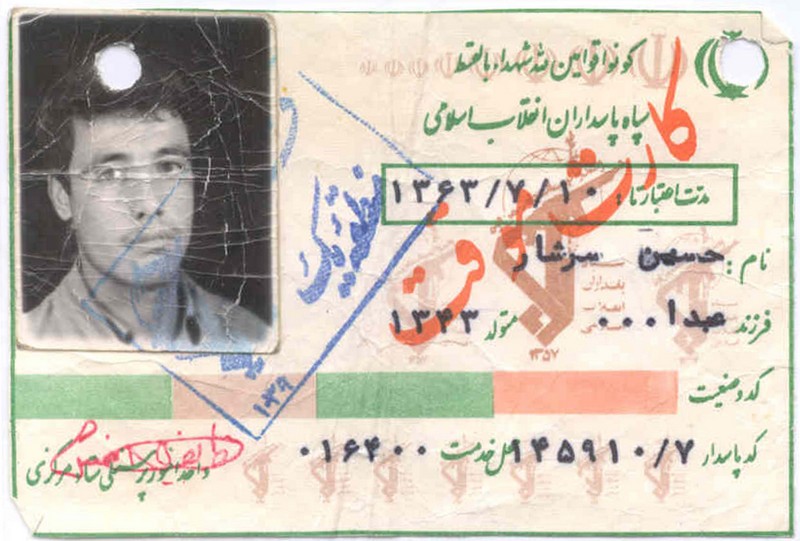 کونوا قوامین لله شهداء بالقسط
سپاه پاسداران انقلاب اسلامی
کارت موقت
مدت اعتبار تا: ۱۳۶۳/۷/۱۰
نام: حسین سرشار
فرزند عبدا... متولد ۱۳۴۳
۱۳۵۷
منطقه یک
کد وضعیت
کد پاسدار ۱۴۵۹۱۰/۷ محل خدمت ۰۱۶۴۰۰
واحد امور پرسنلی ستاد مرکزی